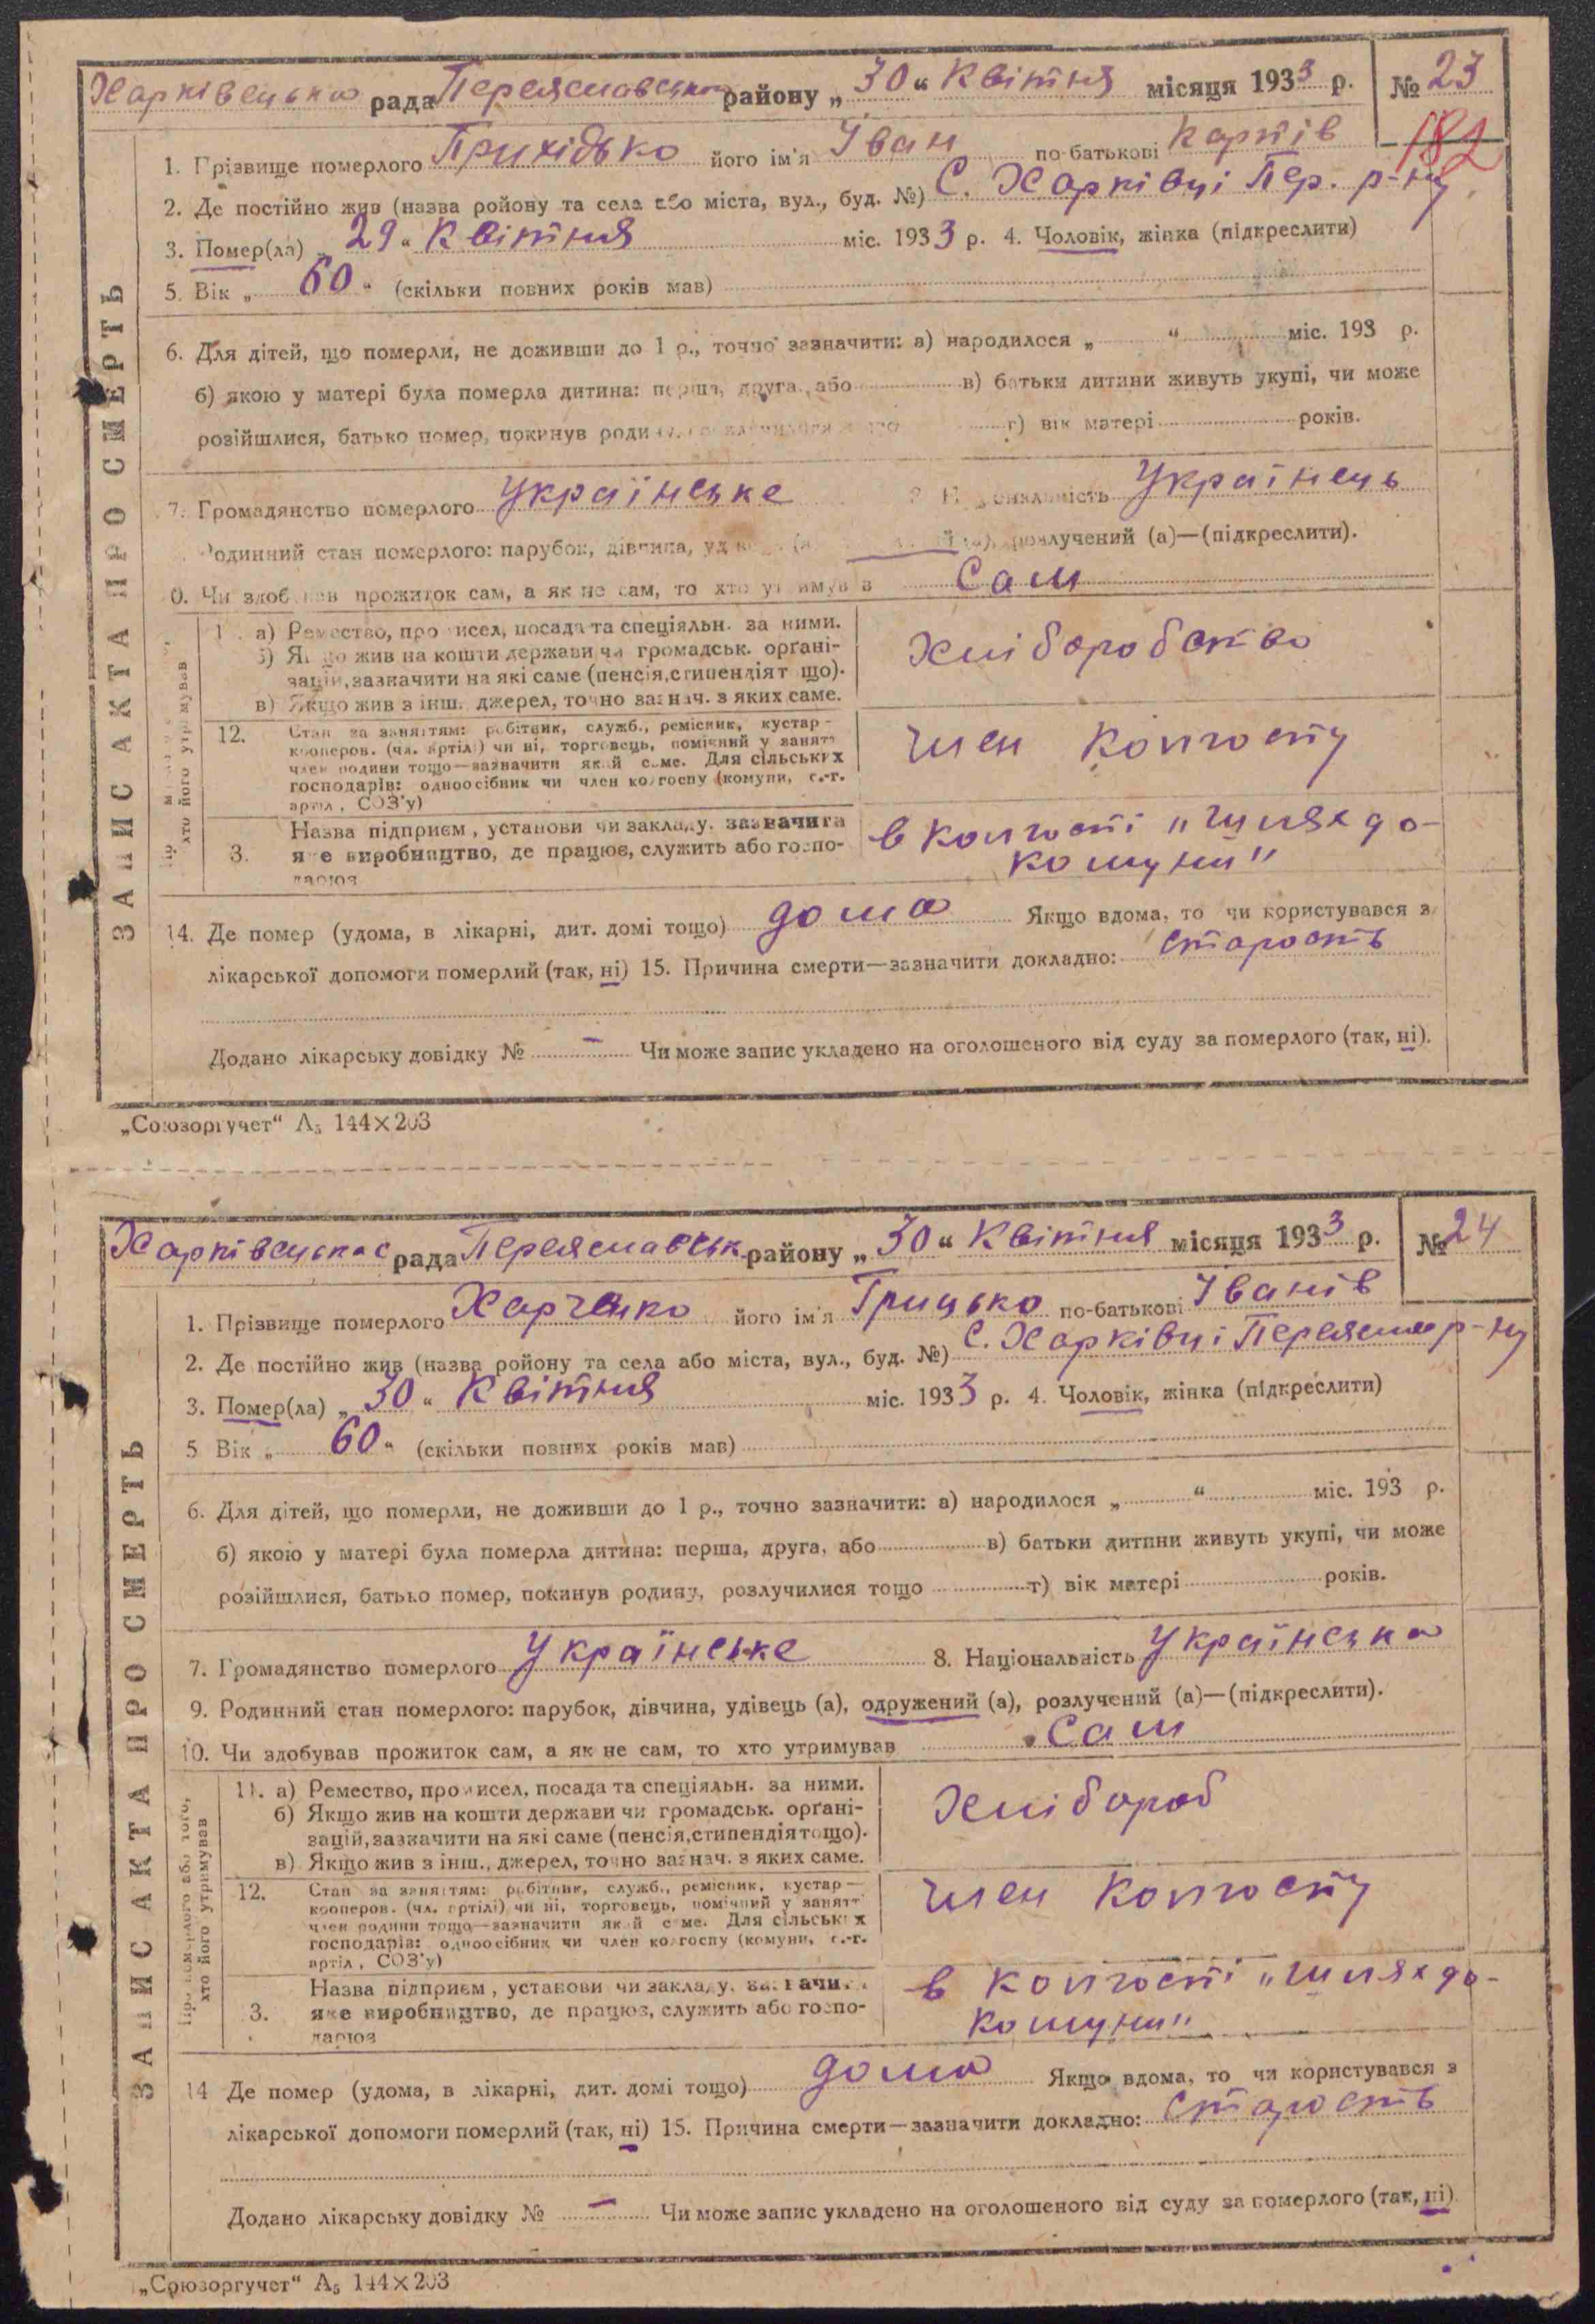 Харківецька рада Переяславськ району „ 30 “ Квітня місяця 1933 р. № 23
182
1. Прізвище померлого Прихідько його ім'я Іван по-батькові Карпів
2. Де постійно жив (назва ройону та села або міста, вул., буд. №) С. Харківці Пер. р-ну
3. Помер(ла) „ 29 “ Квітня міс. 1933 р. 4. Чоловік, жінка (підкреслити)
5. Вік „ 60 “ (скільки повних років мав)
6. Для дітей, що померли, не доживши до 1 р., точно зазначити: а) народилося „ “ міс. 193 р.
б) якою у матері була померла дитина: перша, друга, або в) батьки дитини живуть укупі, чи може
розійшлися, батько помер, покинув родину г) вік матері років.
7. Громадянство померлого Українське Українець
Родинний стан померлого: парубок, дівчина, розлучений (а)—(підкреслити).
0. Чи здобував прожиток сам, а як не сам, то хто утримував Сам
ЗАПИС АКТА ПРО СМЕРТЬ
хто його утримував
а) Ремество, промисел, посада та спеціяльн. за ними.
б) Якщо жив на кошти держави чи громадськ. орґані-
зацій, зазначити на які саме (пенсія, стипендіят що).
в) Якщо жив з інш. джерел, точно зазнач. з яких саме.
Хліборобство
12. Стан за заняттям: робітник, служб., ремісник, кустар -
кооперов. (чл. артілі) чи ні, торговець, помічний у занятті
член родини тощо—зазначити який саме. Для сільських
господарів: одноосібник чи член колгоспу (комуни, с.-г.
артіл, СОЗ'у)
член колгоспу
3. Назва підприєм, установи чи закладу, зазначити
яке виробництво, де працює, служить або госпо-
дарює
в колгоспі „Шлях до-
комуни"
14. Де помер (удома, в лікарні, дит. домі тощо) дома Якщо вдома, то чи користувався з
лікарської допомоги померлий (так, ні) 15. Причина смерти—зазначити докладно: старость
Додано лікарську довідку № – Чи може запис укладено на оголошеного від суду за померлого (так, ні).
„Союзоргучет“ А₅ 144×203
Харківецька рада Переяславськ району „ 30 “ Квітня місяця 1933 р. № 24
1. Прізвище померлого Харченко його ім'я Грицько по-батькові Іванів
2. Де постійно жив (назва ройону та села або міста, вул., буд. №) С. Харківці Переяслав р-ну
3. Помер(ла) „ 30 “ Квітня міс. 1933 р. 4. Чоловік, жінка (підкреслити)
5 Вік „ 60 “ (скільки повних років мав)
6. Для дітей, що померли, не доживши до 1 р., точно зазначити: а) народилося „ “ міс. 193 р.
б) якою у матері була померла дитина: перша, друга, або в) батьки дитини живуть укупі, чи може
розійшлися, батько помер, покинув родину, розлучилися тощо г) вік матері років.
7. Громадянство померлого Українське 8. Національність Українська
9. Родинний стан померлого: парубок, дівчина, удівець (а), одружений (а), розлучений (а)—(підкреслити).
10. Чи здобував прожиток сам, а як не сам, то хто утримував Сам
ЗАПИС АКТА ПРО СМЕРТЬ
Про померлого або того,
хто його утримував
11. а) Ремество, промисел, посада та спеціяльн. за ними.
б) Якщо жив на кошти держави чи громадськ. орґані-
зацій, зазначити на які саме (пенсія, стипендія тощо).
в) Якщо жив з інш., джерел, точно зазнач. з яких саме.
Хлібороб
12. Стан за заняттям: робітник, служб., ремісник, кустар—
кооперов. (чл. артілі) чи ні, торговець, помічний у занятті
член родини тощо—зазначити який саме. Для сільських
господарів: одноосібник чи член колгоспу (комуни, с.-г.
артіл, СОЗ'у)
член колгоспу
3. Назва підприєм, установи чи закладу, зазначити
яке виробництво, де працює, служить або госпо-
дарює
в колгоспі „Шлях до-
комуни"
14 Де помер (удома, в лікарні, дит. домі тощо) дома Якщо вдома, то чи користувався з
лікарської допомоги померлий (так, ні) 15. Причина смерти—зазначити докладно: старость
Додано лікарську довідку № – Чи може запис укладено на оголошеного від суду за померлого (так, ні)
„Союзоргучет“ А₅ 144×203